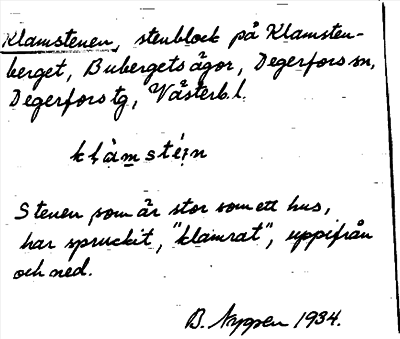 Klamstenen, stenblock på Klamsten-
berget, Bubergets ägor, Degerfors sn,
Degerfors tg, Västerb. l.
klàmstéi̯n
Stenen som är stor som ett hus,
har spruckit, "klamrat", uppifrån
och ned.
B. Nyppen 1934.